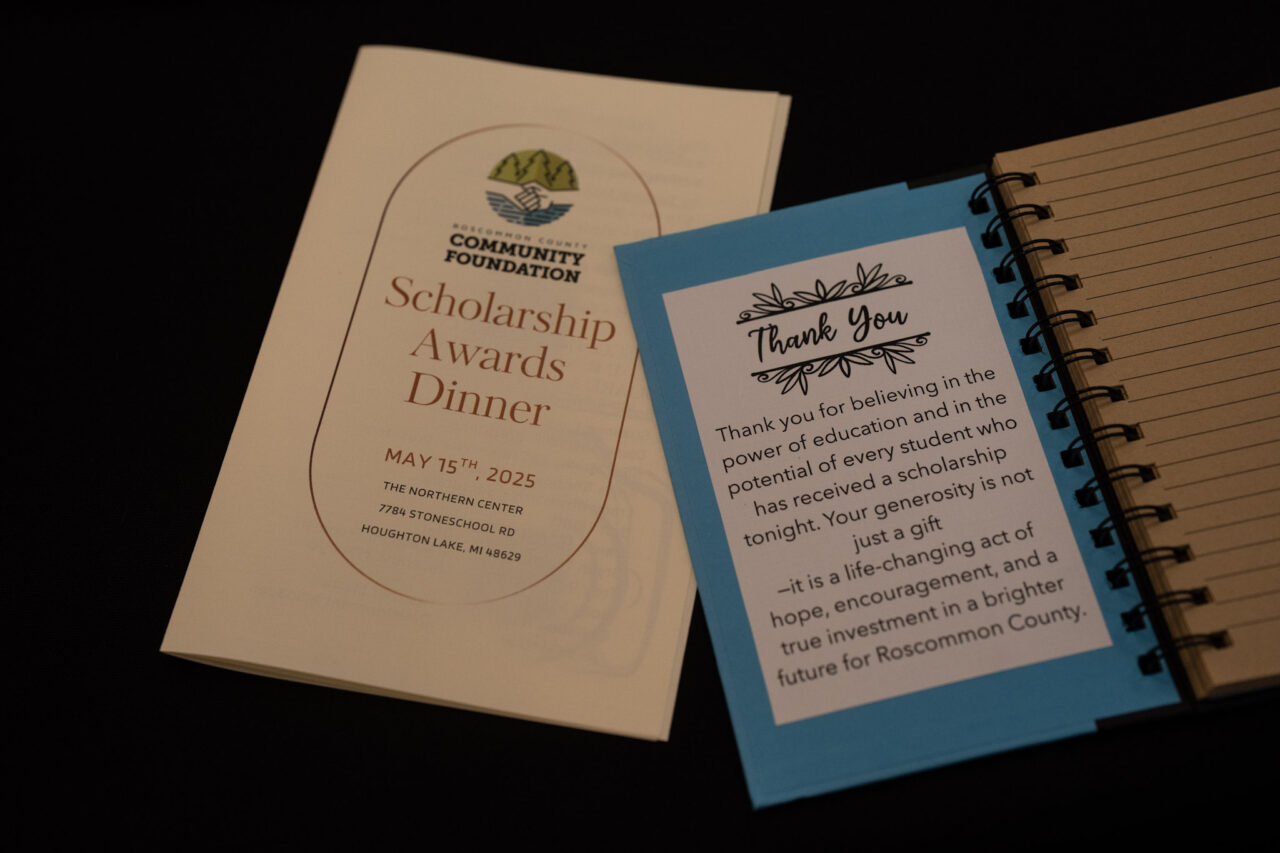 ROSCOMMON COUNTY
COMMUNITY
FOUNDATION
Scholarship
Awards
Dinner
MAY 15TH, 2025
THE NORTHERN CENTER
7784 STONESCHOOL RD
HOUGHTON LAKE, MI 48629
Thank You
Thank you for believing in the
power of education and in the
potential of every student who
has received a scholarship
tonight. Your generosity is not
just a gift
—it is a life-changing act of
hope, encouragement, and a
true investment in a brighter
future for Roscommon County.